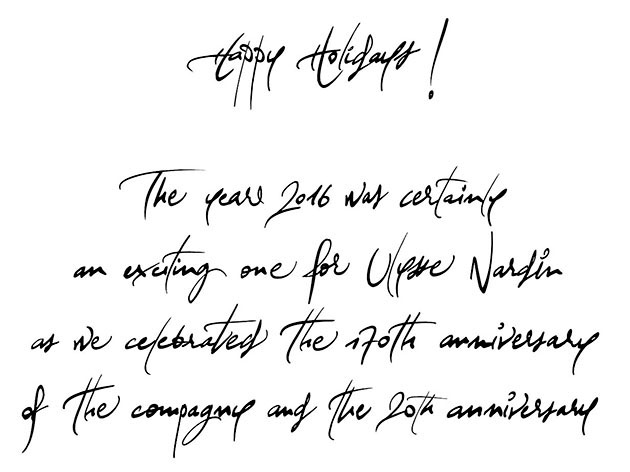 Happy Holidays!
The year 2016 was certainly
an exciting one for Ulysse Nardin
as we celebrated the 170th anniversary
of the compagny and the 20th anniversary